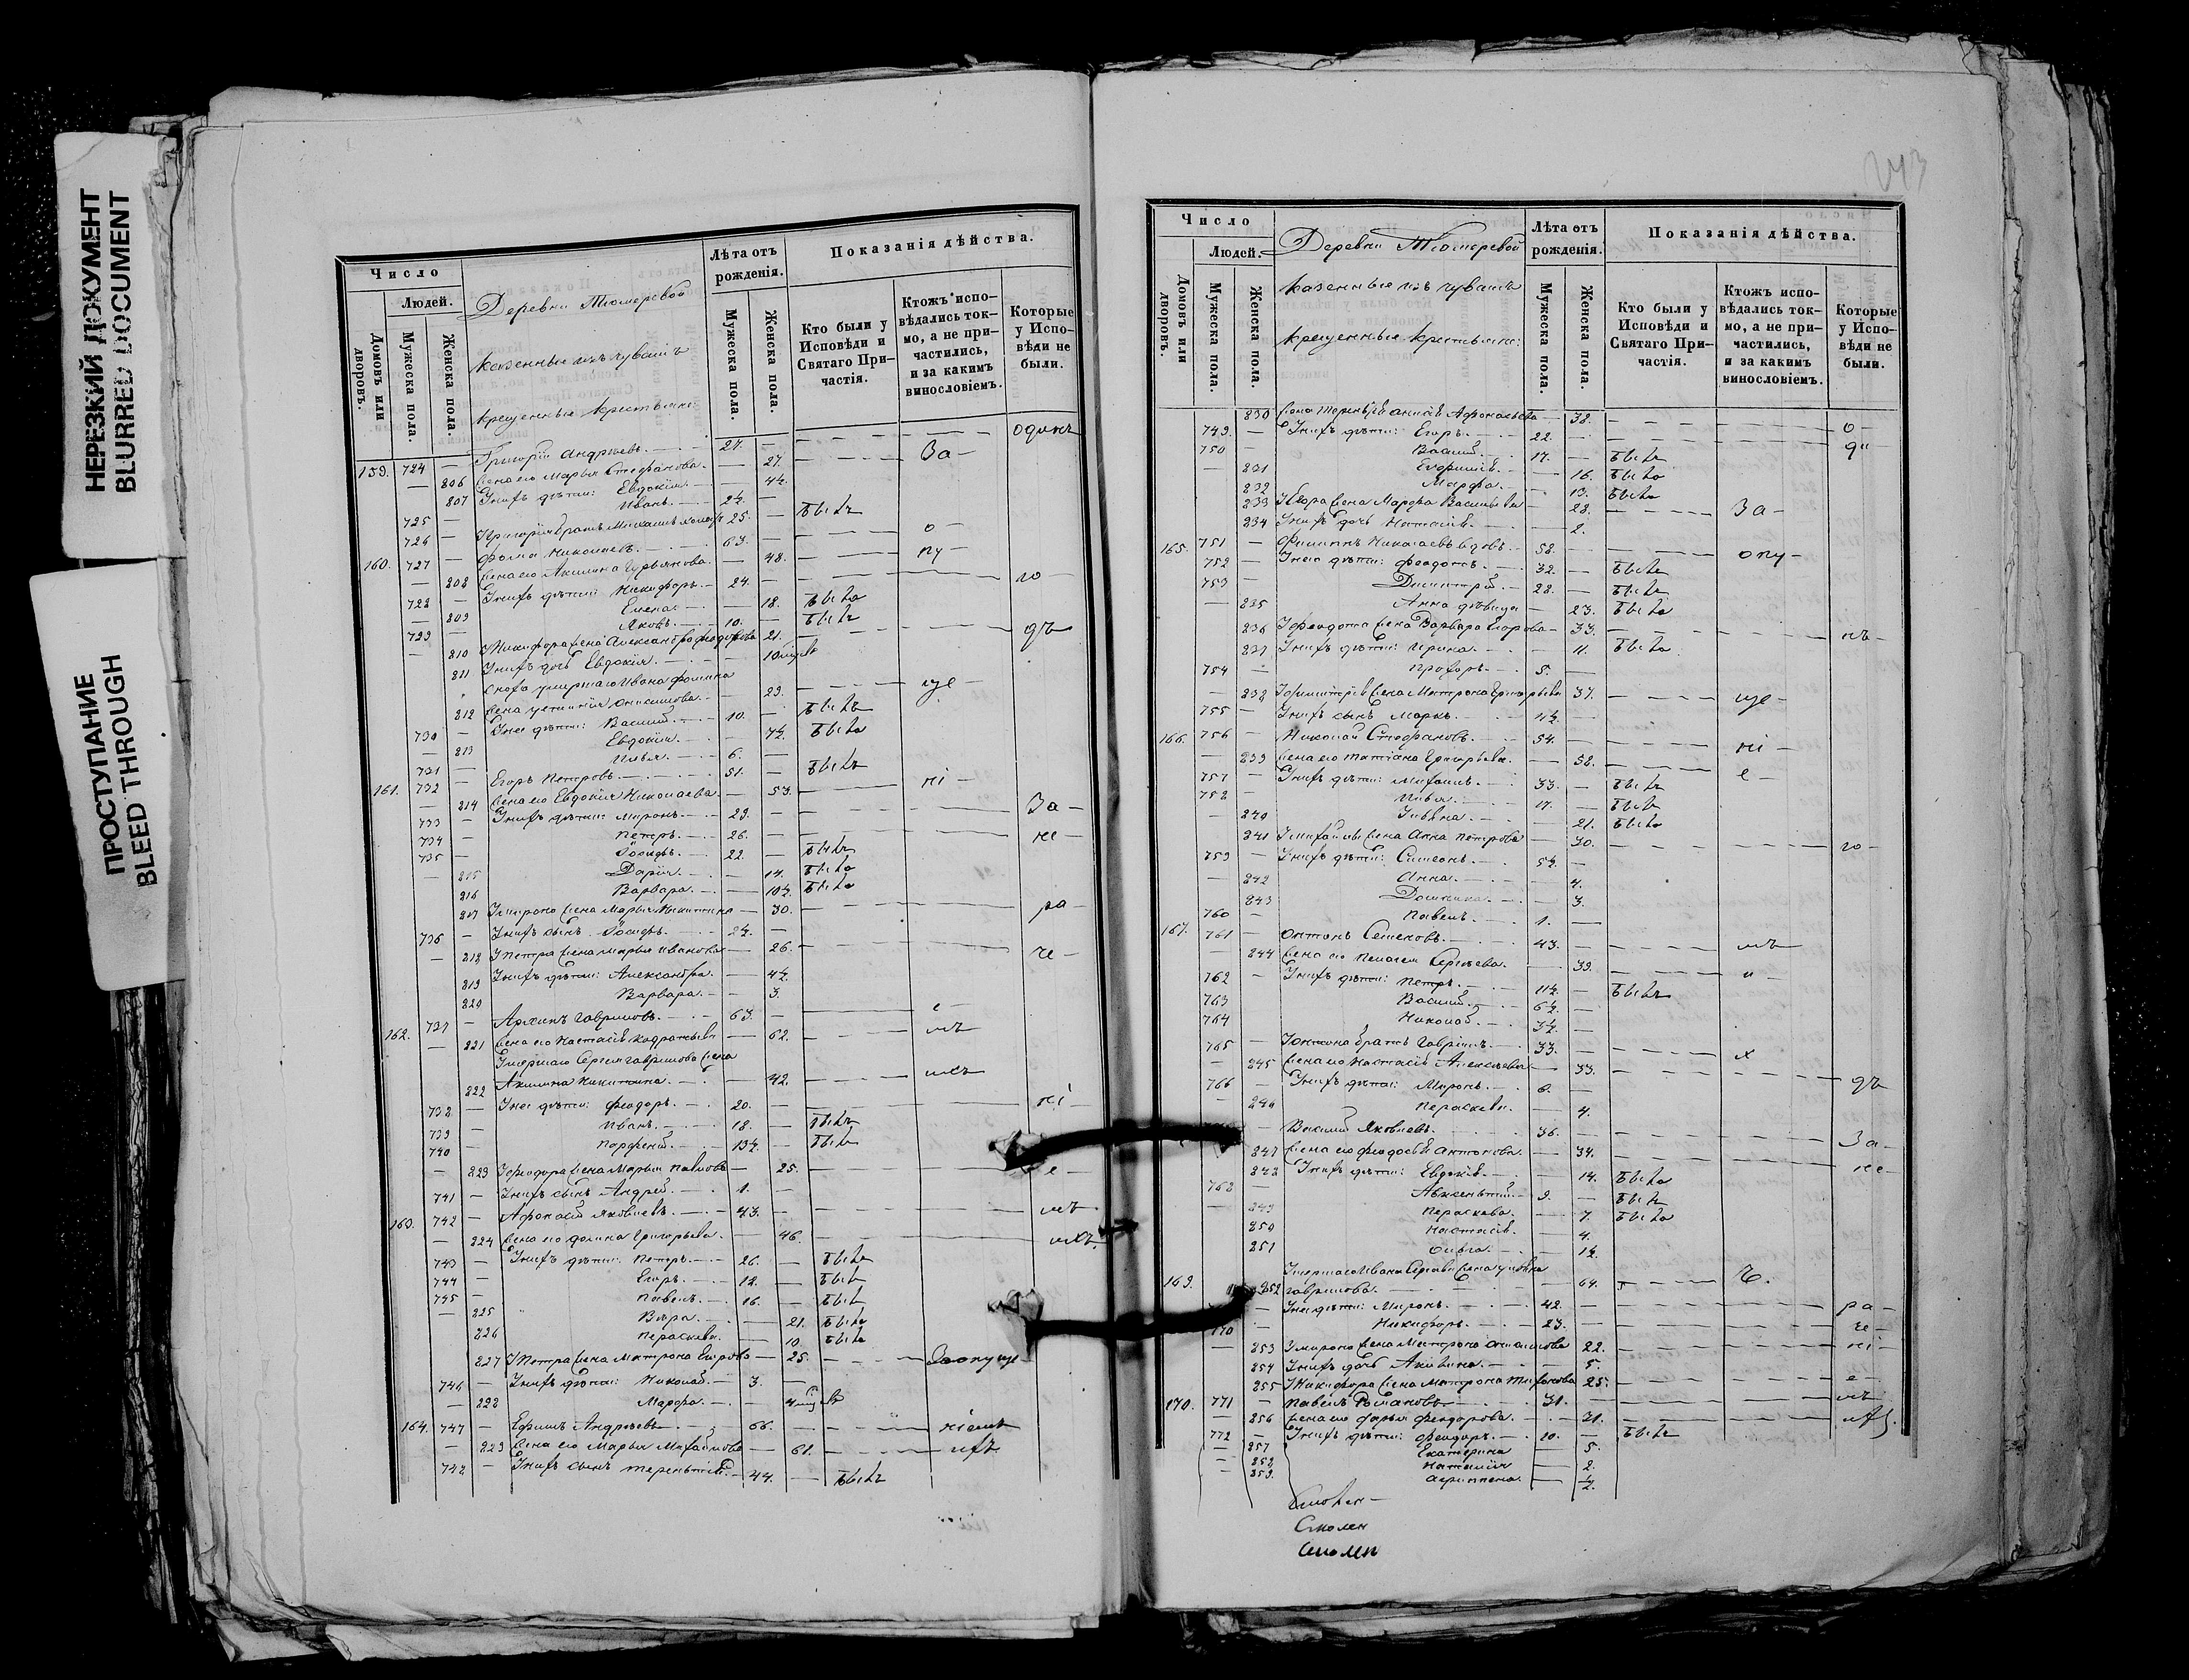 НЕРЕЗКИЙ ДОКУМЕНТ
BLURRED DOCUMENT
ПРОСТУПАНИЕ
BLEED THROUGH
Число
Людей.
Домовъ или дворовъ.
Мужеска пола.
Женска пола.
Деревни Тюмеревой
казенные изъ чувашъ
крещенные крестьяне:
Лѣта отъ рожденія.
Мужеска пола.
Женска пола.
Показанія дѣйства.
Кто были у Исповѣди и Святаго Причастія.
Ктожъ исповѣдались токмо, а не причастились, и за какимъ винословіемъ.
Которые у Исповѣди не были.
159. 724 — Григорій Андреевъ. 27. — одинъ
— 806 жена его Марья Стефанова. — 27. За—
807 У нихъ дѣти: Евдокія. — 4½.
725 — Иванъ. 2½. —
726 — 25. — Были
160. 727 — Фома Николаевъ. 63. — о—
— 808 жена его Акилина Гурьянова. — 48. пу—
728 — У нихъ дѣти: Никифоръ. 24. — го—
— 809 Елена. — 18. Была
729 — Яковъ. 10. — Былъ
— 810 Никифора жена Александра Феодорова 21. дъ
811 У нихъ дочь Евдокія. — 10
Сноха умершаго Ивана Фомина
812 жена — 29. ще—
730 — У нея дѣти: Василій. 10. — Былъ
— 813 Евдокія. — 7½. Была
731 — Илья. 6. — Былъ
161. 732 — Егоръ Петровъ. 51. — ні—
— 814 жена его Евдокія Николаева. — 53. За—
733 — У нихъ дѣти: Миронъ. 29. —
734 — Петръ. 26. — не—
735 — Іосифъ. 22. — Былъ
— 815 Дарія. — 14. Была
816 Варвара. — 10½. Была
817 У Мирона жена Марья Никитина — 30. ра—
736 — У нихъ сынъ Іосифъ. 2½. —
— 818 У Петра жена Марья Иванова — 26. че—
819 У нихъ дѣти: Александра. — 4½.
820 Варвара. — 3.
162. 737 — Гавриловъ. 63. — е—
— 821 жена его Настасія — 62. мъ
Умершаго Сергея Гаврилова жена
822 Акилина Никитина. — 42. ихъ
738 — У нея дѣти: Феодоръ. 20. — ні—
739 — Иванъ. 18. — Былъ
740 — Парфеній. 13½. — Былъ
— 823 У Феодора жена Марья Павлова — 25. е—
741 — У нихъ сынъ Андрей. 1. —
163. 742 — Афанасій Яковлевъ. 43. — мъ
— 824 жена его Григорьева. — 46. ихъ
743 — У нихъ дѣти: Петръ. 26. — Былъ
744 — Егоръ. 18. — Былъ
745 — Павелъ. 16. — Былъ
— 825 Вѣра. — 21. Была
826 Пераскева. — 10. Была
827 У Петра жена Матрона Егорова — 25. Заопуще
746 — У нихъ дѣти: Николай. 3. —
— 828 Марфа. — 4
164. 747 — Ефимъ Андреевъ. 66. — ніемъ
— 829 жена его Марья Михайлова — 61. ихъ
748 — У нихъ сынъ Терентій. 44. — Былъ
243
Число
Людей.
Домовъ или дворовъ.
Мужеска пола.
Женска пола.
Деревни Тюмеревой
казенные изъ чувашъ
крещенные крестьяне:
Лѣта отъ рожденія.
Мужеска пола.
Женска пола.
Показанія дѣйства.
Кто были у Исповѣди и Святаго Причастія.
Ктожъ исповѣдались токмо, а не причастились, и за какимъ винословіемъ.
Которые у Исповѣди не были.
830 жена Афонасьева — 38. о—
749. — У нихъ дѣти: Егоръ. 22. — ди
750 — Василій. 17. — Былъ
— 831 Евфимія. — 16. Была
832 Марфа. — 13. Была
833 У Егора жена Марфа Васильева — 28. За—
834 У нихъ дочь Настасія. — 2.
165. 751 — Филиппъ Николаевъ вдовъ. 58. — опу—
752 — У него дѣти: Феодотъ. 32. — Былъ
753 — Димитрій. 28. — Былъ
— 835 Анна дѣвица — 23. Была
836 У Феодота жена Варвара Егорова — 33. нъ—
837 У нихъ дѣти: Ирина. — 11. Была
754 — Прохоръ. 5. —
— 838 У Димитрія жена Матрона Григорьева 37. ще—
755 — У нихъ сынъ Маркъ. 1½. —
166. 756 — Николай Стефановъ. 54. — ні—
— 839 жена его Татіана Григорьева. — 58. е—
757 — У нихъ дѣти: Михаилъ. 33. — Былъ
758 — Илья. 17. — Былъ
— 840 — 21. Была
841 У Михаила жена Анна Петрова — 30. го—
759 — У нихъ дѣти: Симеонъ. 5½. —
— 842 Анна. — 4.
843 — 3.
760 — Павелъ. 1. —
167. 761 — Антонъ Семеновъ. 43. — мъ
844 жена его Пелагея Сергѣева. — 39. и
762 — У нихъ дѣти: Петръ. 11½. — Былъ
763 Василій. 6½. —
764 Николай. 3½. —
765 — У Антона братъ Гавріилъ. 33. — х
— 845 жена его Настасія Алексеева — 33. дъ
766 — У нихъ дѣти: Миронъ. 6. —
— 846 Пераскева. — 4.
— Василій Яковлевъ. 36. — За—
847 жена его Феодосія Антонова. — 34. не—
848 У нихъ дѣти: Евдокія. — 14. Была
768 — Авксентій. 9. — Былъ
— 849 Пераскева. — 7. Была
850 Настасія. — 4.
251 Ольга. — 1½.
169. 852 Гаврилова. — 64. Ч.
— У нея дѣти: Миронъ. 42. — ра—
770 — Никифоръ. 23. — че—
853 У Мирона жена Матрона 22. ні—
854 У нихъ дочь Акилина. — 5.
855 У Никифора жена Матрона 25. е—
170. 771 — Павелъ Романовъ. 31. — мъ
— 856 жена его Дарья Феодорова. — 31. ихъ.
772 — У нихъ дѣти: Феодоръ. 10. — Былъ
— 857 Екатерина — 5.
— 858 Наталія — 2.
— 859. Агриппена. — ½.
Смолен
Смолен